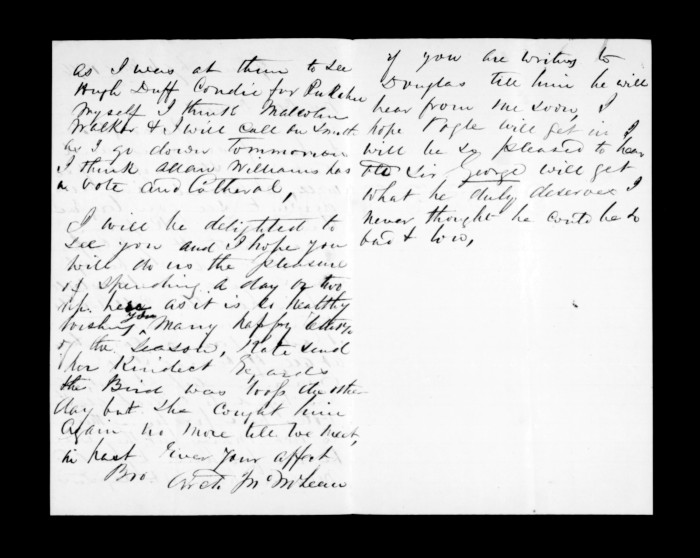 as I was at them to see
Hugh Duff Condie for Pukahu
myself I think Malcolm
Walker & I will call on Smith
as I go down Tommorrow
I think Allan Williams has
a vote and Catheral,
I will be delighted to
see you and I hope you
will do us the pleasure
of spending a day or two
up here as it is so healthy
Wishing you Many happy returns
of the Season, Kate send
her Kindest Regards
the Bird was loose the other
day but she caught him
Again no more till we meet,
in hast Ever your affect
Bro Archd McLean
if you are writing to
Douglas tell him he will
hear from me soon, I
hope will get in I
will be so pleased to hear
Sir George will get
What he duly deserves I
never thought he could be so
bad & low,